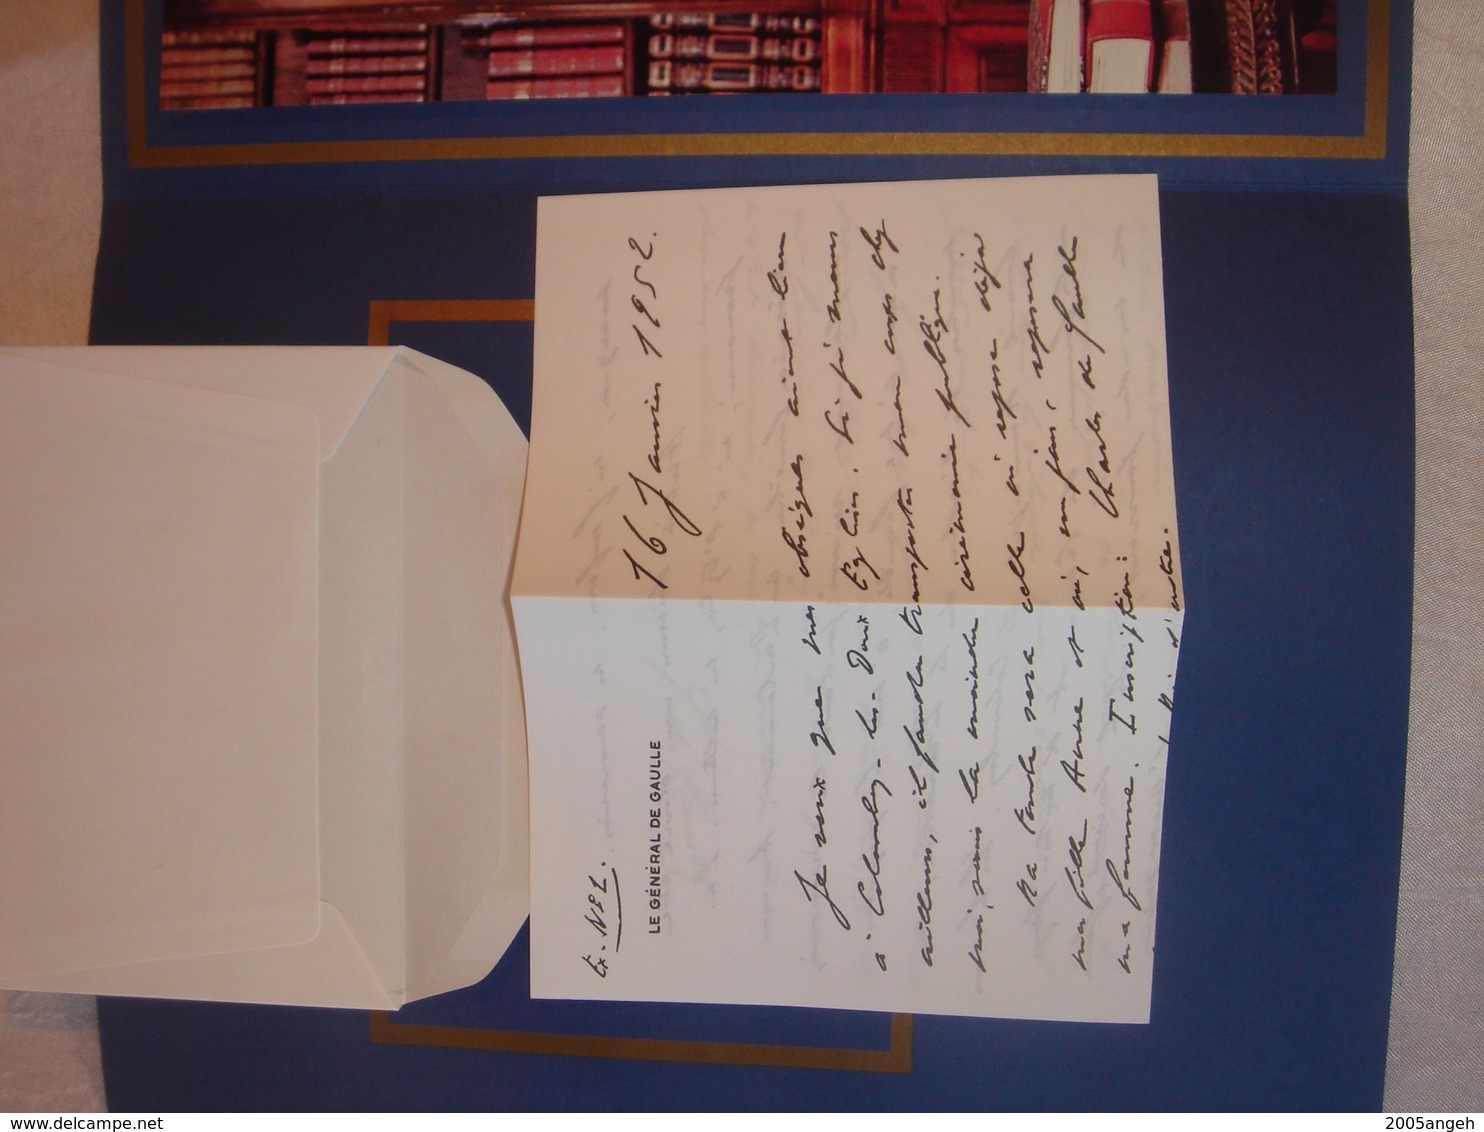 Ex. Nº 1.
LE GÉNÉRAL DE GAULLE
16 Janvier 1952.
Je veux que mes obsèques aient lieu
à Colombey-les-Deux Églises. Si je meurs
ailleurs, il faudra transporter mon corps chez
moi, sans la moindre cérémonie publique.
Ma tombe sera celle où repose déjà
ma fille Anne et où, un jour, reposera
ma femme. Inscription: Charles de Gaulle
2005angeh
delcampe.net